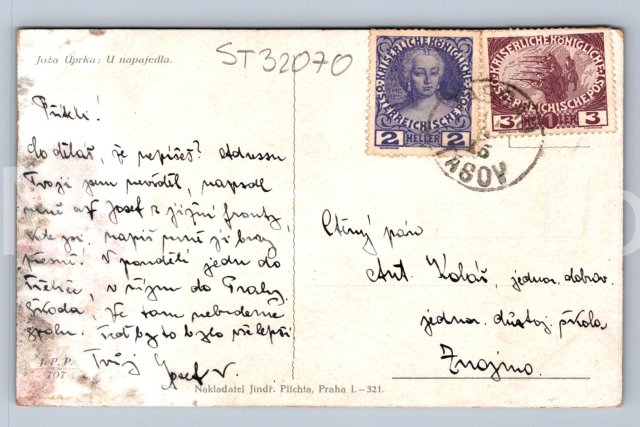 Joža Úprka: U napajedla.
ST32070
KAISERLICHE KÖNIGLICHE
ÖSTERREICHISCHE POST
2 HELLER 2
KAISERLICHE KÖNIGLICHE
ÖSTERREICHISCHE POST
3 3
Co děláš, že nepíšeš? Adressu
Tvoji jsem nevěděl, napsal
Josef z jižní fronty,
napiš mně ji brzy
V pondělí jedu do
v říjnu do Prahy.
Škoda, že tam nebudeme
spolu. Teď by to bylo nejlepší
Tvůj Josef V.
Ctěný pán
Ant. Kolář, jednor. dobrov.
jednor. důstoj. škola
Znojmo.
J.P.P.
707
Nakladatel Jindř. Plichta, Praha I.-321.